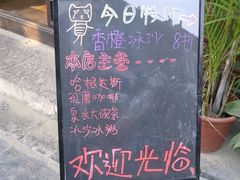 今日特价
香橙冰沙 8打
本店主营....
哈根达斯
现磨咖啡
泉水大碗茶
冰沙冰粥
欢迎光临